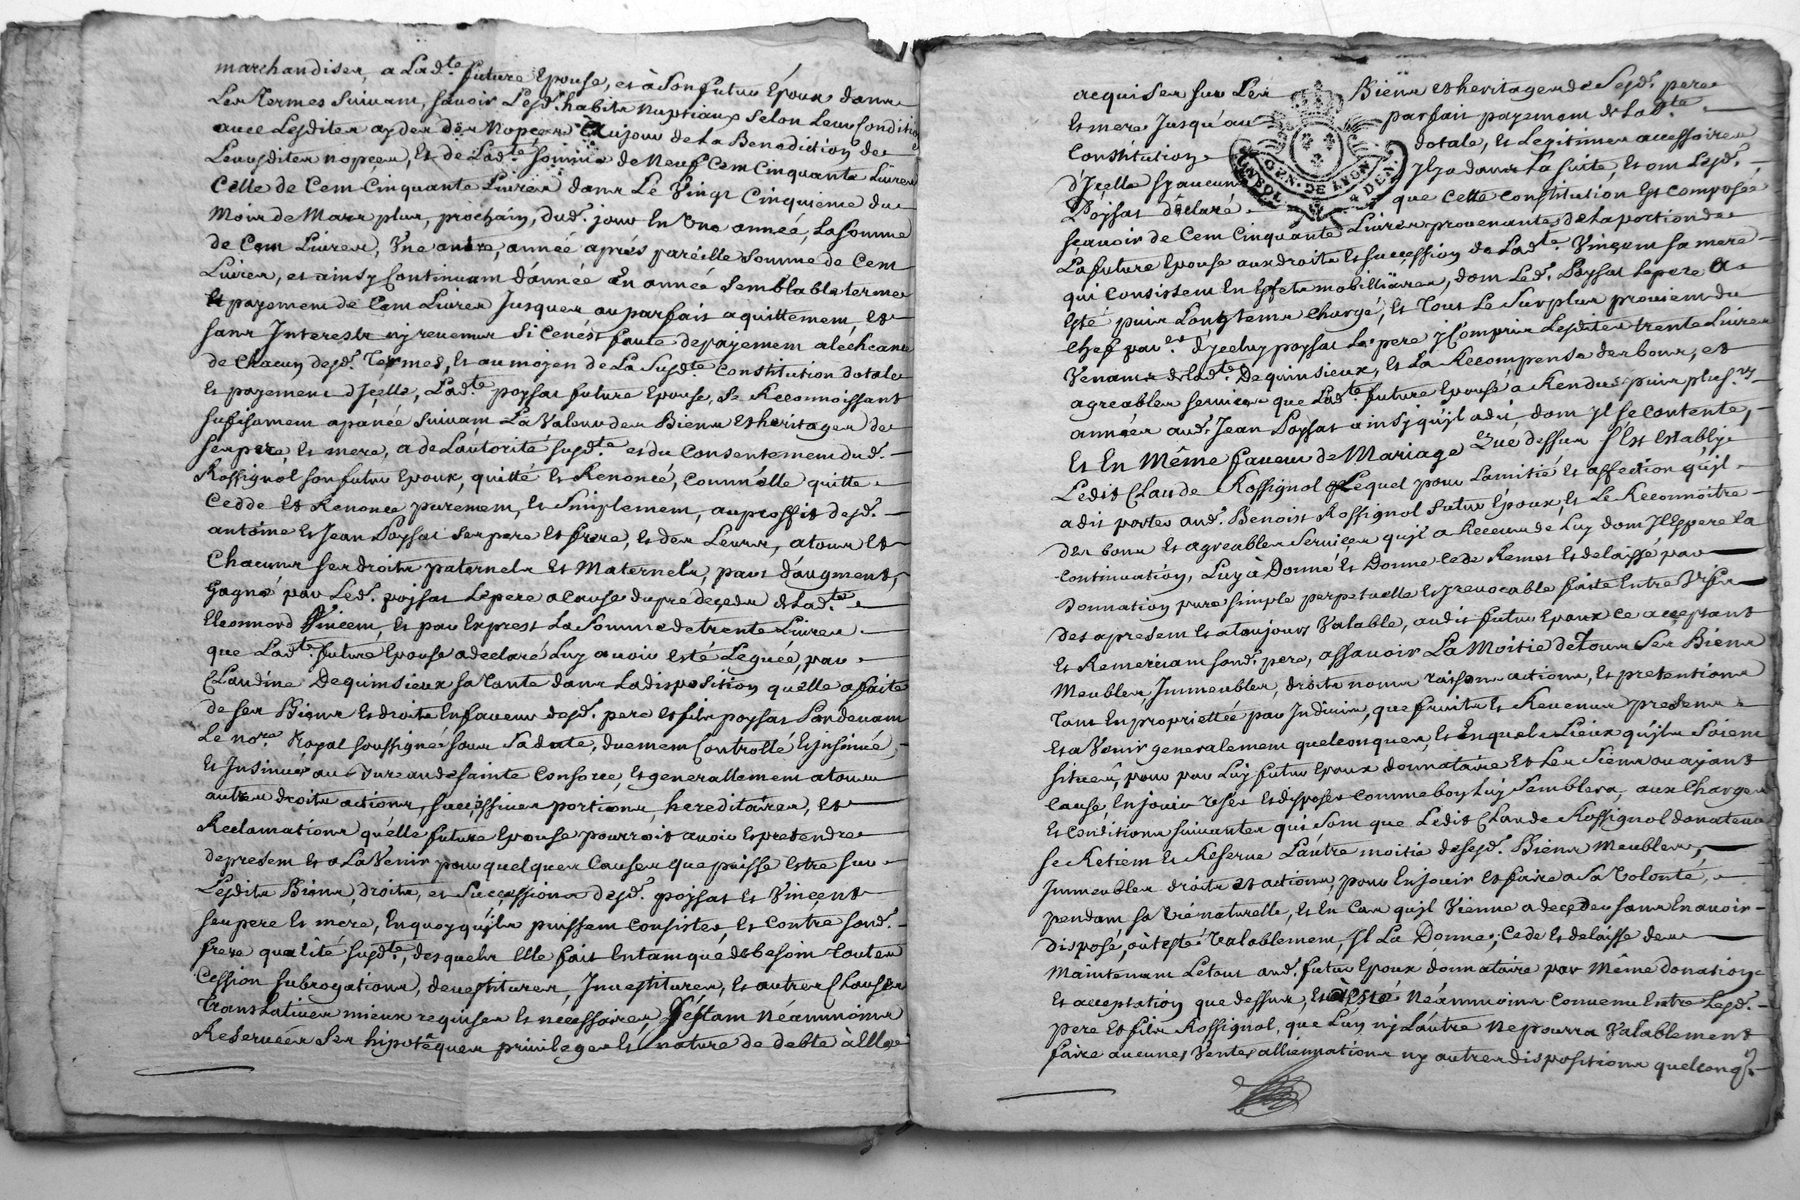 marchandises, a Ladte future Epouse, et à Son futur Époux dans
Les termes Suivans, Savoir Lesds. habits Nuptiaux Selon Leur Condition
avec Lesdites aydes des Nopces Aujour de La Benediction de
Leursdites nopces, Et de Ladte Somme de Neuf Cent Cinquante Livres
Celle de Cent Cinquante Livres dans Le Vingt Cinquieme du
Mois de Mars plus, prochain, dud. jour En Une année, La Somme
de Cent Livres, Une autre, année aprés pareille Somme de Cent
Livres, et ainsy Continuant dannée En année Semblable terme
Et payement de Cent Livres Jusques au parfait aquittement, et
Sans Interests ny revenus Si cenést faute depayement a léchéance
de Chacun desds. Termes, Et au moyen de La Susdte. Constitution dotale
Et payement dIçelle, Ladte poysat future Epouse, Se Reconnoissant
Sufisament apanée Suivant La Valeur des Biens Et heritages de
Ses pere, Et mere, a de Lautorité Susdte et du Consentement dud.
Rossignol Son futur Epoux, quitté Et Renoncé, Comme élle quitte
Cedde Et Renonce purement, Et Simplement, au proffit desd.
antoine Et Jean Poysat Ses pere Et frere, Et des Leurs, atous Et
Chacuns Ses droits paternels Et Maternels, part d'augment,
Gagné par Led. poysat Lepere a Cause du predeçeds de Ladte
Eleonnord Vincent, Et par Exprest La Somme de trente Livres
que Ladte. future Epouse a declaré Luy avoir Esté Leguée, par
Claudine Dequinsieux Sa tante dans La disposition quelle a faite
de Ses Biens Et droits En faveur desds. pere Et fils poysat Pardevant
Le nore. Royal Soussigné Sous Sa date, duement Controllé Et Insinué,
Et Insinué au Bureau de Sainte Consorce, Et generallement a tous
autres droits actions, Successives portions, hereditaires, Et
Reclamations quélle future Epouse pourroit avoir Et pretendre
depresent Et a La Venir pour quelques Causes que puisse Estre Sur
Lesdits Biens, droits, et Successions desds. poysat Et Vinçent
Ses pere Et mere, En quoy quils puissent Consister, Et Contre Sond.
frere qualité Susdte, desquels Elle fait Entant que de besoin toutes
Cession Subrogations, devestitures, Investitures, Et autres Clauses
translatives mieux requises Et necessaires, Séstant Néanmoins
Reservées Ses hipotêques privileges Et nature de debte a Elle
acquises Sur Les Biens et heritages de Sesds. pere
Et mere Jusqu'au parfait payement de Ladte
Constitution dotale, Et Legitimes accessoires
d'Içelle Sy aucuns Il y a dans La Suite, Et ont Lesds.
Poysat déclaré que Cette Constitution Est Composée
Sçavoir de Cent Cinquante Livres provenantes de La portion de
La future Epouse aux droits Et Succession de Ladte. Vinçent Sa mere
qui Consistent En Effets mobilliaires, dont Led. Poysat Lepere a
Esté puis Longtems Chargé, Et Tout Le Surplus provient du
Chef d'Jceluy poysat Le pere y Compris Lesdites trente Livres
Venants de Ladte. Dequinsieux, Et La Recompense des bons, et
agreables Services que Ladte future Epouse a Rendus puis plusrs
années aud. Jean Poysat ainsy quil a dit, dont Jl Se Contente,
Et En Même faveur de Mariage Que dessus S'Est Estably
Ledit Claude Rossignol Lequel pour Lamitié Et affection quil
a dit porter aud. Benoist Rossignol futur Epoux, Et Le Reconnoitre
des bons Et agreables Services quil a Receus de Luy dont Jl Espere La
Continuation, Luy a Donné Et Donne Cede Remet Et delaissé par
Donnation pure Simple perpetuelle Et jrrevocable faite Entre Vifs
des apresent Et atoujours Valable, audit futur Epoux Ce acceptant
Et Remerciant Sond. pere, assavoir La Moitié de Tous Ses Biens
Meubles, Immeubles, droits noms raisons actions, Et pretentions
tant En proprietté par Indivis, que fruits Et Revenus presents
Et a Venir generalement quelconques, Et En quels Lieux quils Soient
Situés, pour par Luy futur Epoux donnataire Et Les Siens ou ayant
Cause, En jouir User Et disposer Comme bon Luy Semblera, aux Charges
Et Conditions Suivantes qui Sont que Ledit Claude Rossignol donateur
Se Retient Et Reserve Lautre moitié desesds. Biens Meubles,
Immeubles droits et actions, pour En jouir Et faire a Sa Volonté,
pendant Sa Vie naturelle, Et En Cas quil Vienne a deçeder Sans En avoir
disposé, ou testé Valablement, Jl La Donne, Cede Et delaisse des
Maintenant Letout aud. futur Epoux donnataire par Même donation
Et acceptation que dessus, Et a Esté Néanmoins Convenu Entre Lesds.
pere Et fils Rossignol, que Lun ny Lautre Ne pourra Valablement
faire aucunes Ventes alliennations ny autres dispositions quelconqs.
GEN. DE LYON